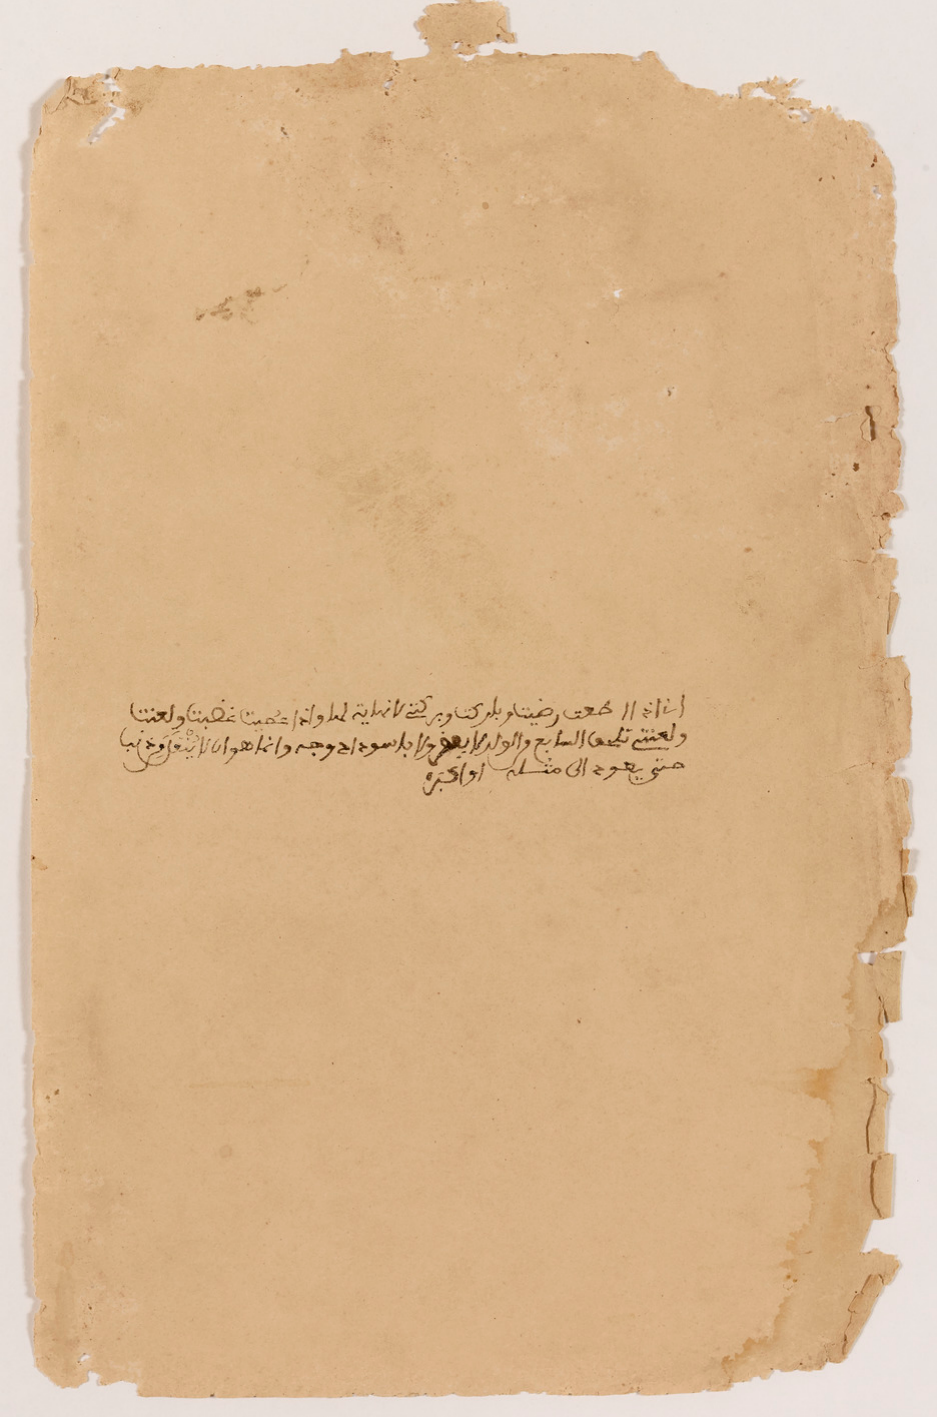 انا اذا اطعت رضيت وباركت وبركتي لا نهاية لها واذا عصيت غضبت ولعنت
ولعنتي تلحق السابع والولد لا يغفر ولا بلا سوء اوجه وانما هو ان لا ذنبا
حتى يعود الى مثله او اكبره